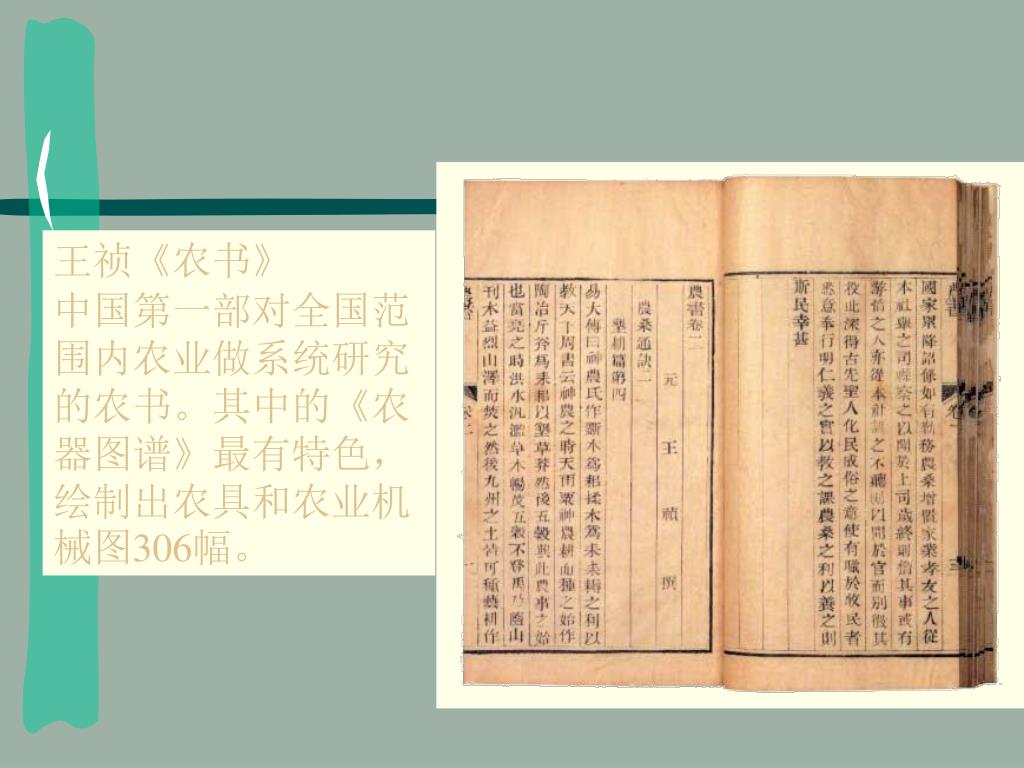 王祯《农书》
中国第一部对全国范
围内农业做系统研究
的农书。其中的《农
器图谱》最有特色，
绘制出农具和农业机
械图306幅。
國家累降詔條如有勤務農桑增置家業孝友之人從
本社舉之司縣察之以聞於上司歲終則稽其事或有
游惰之人亦從本社訓之不聽則以聞於官而別徵其
役此深得古先聖人化民成俗之意使有職於牧民者
悉意奉行明仁義之實以教之課農桑之利以養之則
斯民幸甚
農書卷二
元 王 禎 撰
農桑通訣二
墾耕篇第四
易大傳曰神農氏作斲木為耜揉木為耒耒耨之利以
教天下周書云神農之時天雨粟神農耕而種之始作
陶冶斤斧為耒耜以墾草莽然後五穀興此農事之始
也當堯之時洪水汎濫草木暢茂五穀不登禹乃隨山
刊木益烈山澤而焚之然後九州之土皆可種藝耕作